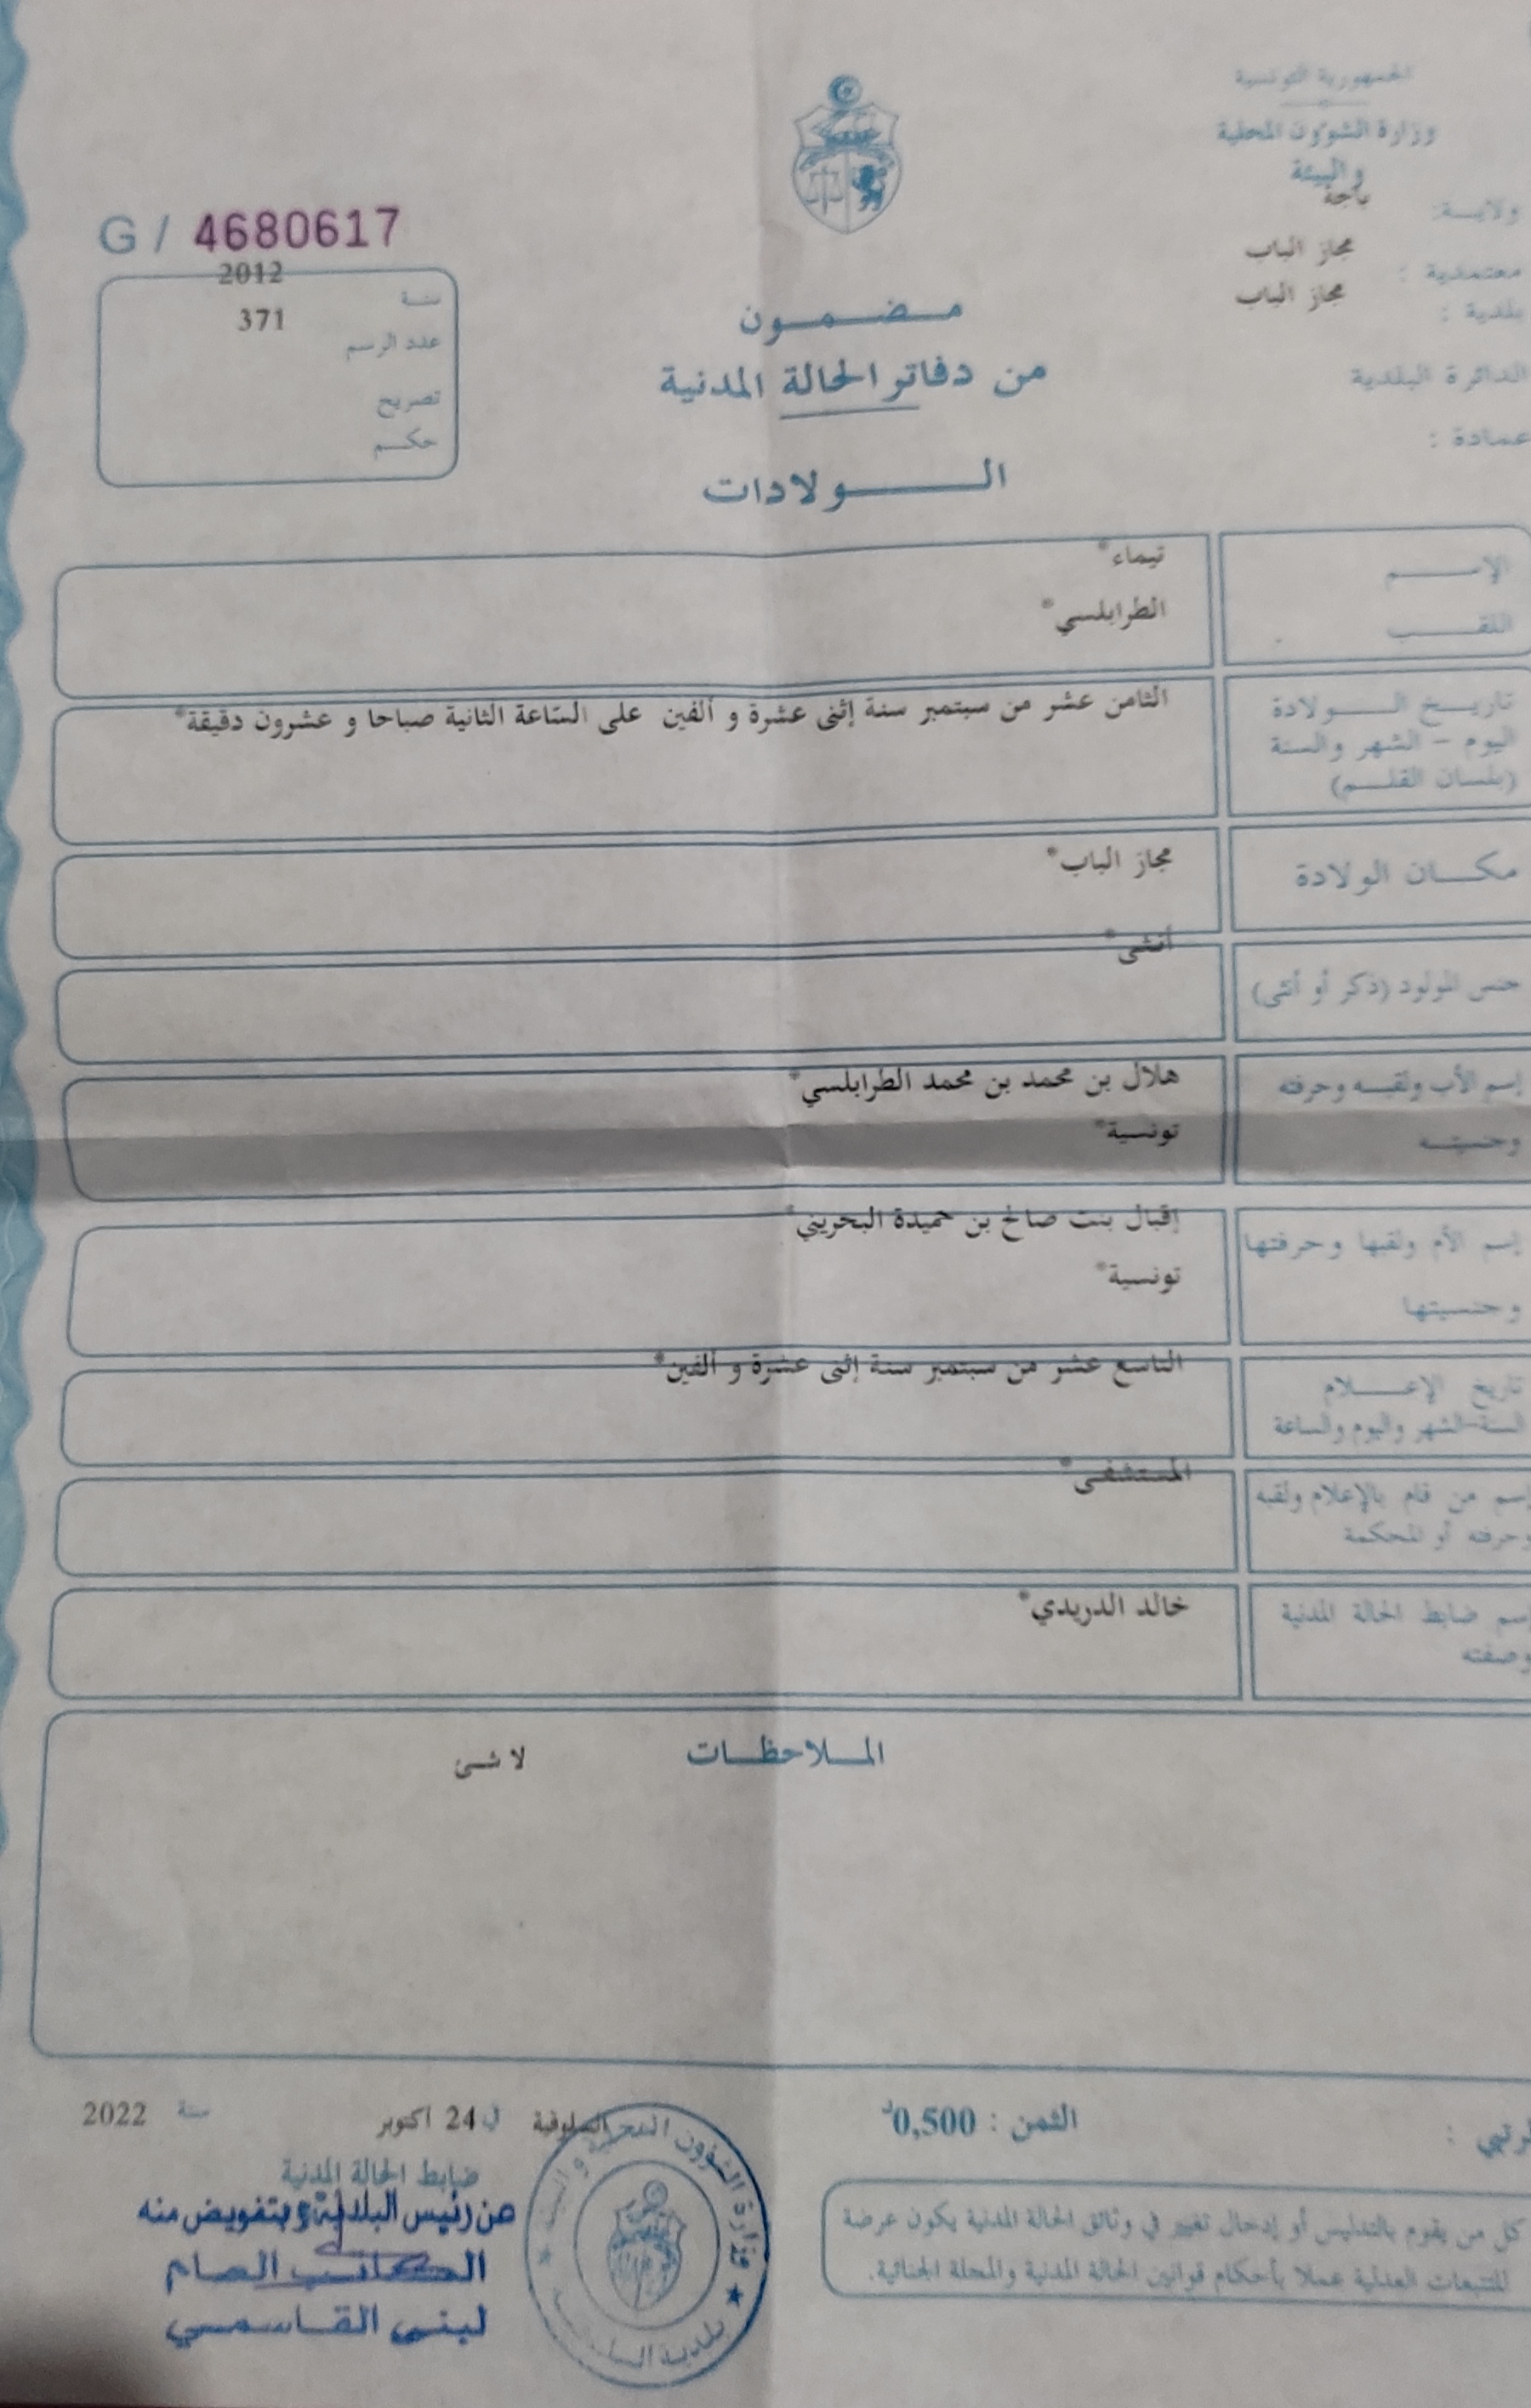 الجمهورية التونسية
وزارة الشؤون المحلية
والبيئة
ولايـــة: باجة
معتمدية : مجاز الباب
بلدية : مجاز الباب
الدائرة البلدية
عمادة :
G / 4680617
سنة 2012
عدد الرسم 371
تصريح
حكم
مضمون
من دفاتر الحالة المدنية
الولادات
الإسم تيماء*
اللقب الطرابلسي*
تاريخ الولادة
اليوم - الشهر والسنة
(بلسان القلم)
الثامن عشر من سبتمبر سنة إثنى عشرة و ألفين على الساعة الثانية صباحا و عشرون دقيقة*
مكان الولادة مجاز الباب*
جنس المولود (ذكر أو أنثى) أنثى*
إسم الأب ولقبه وحرفته هلال بن محمد بن محمد الطرابلسي*
وجنسيته تونسية*
إسم الأم ولقبها وحرفتها إقبال بنت صالح بن حميدة البحريني*
وجنسيتها تونسية*
تاريخ الإعلام التاسع عشر من سبتمبر سنة إثنى عشرة و ألفين*
السنة-الشهر واليوم والساعة
إسم من قام بالإعلام ولقبه المستشفى*
وحرفته أو المحكمة
إسم ضابط الحالة المدنية خالد الدريدي*
وصفته
الملاحظات لا شئ
الثمن : 0,500د
السلوقية في 24 أكتوبر سنة 2022
ضابط الحالة المدنية
عن رئيس البلدية وبتفويض منه
الكاتب العام
لبنى القاسمي
وزارة الشؤون المحلية و البيئة
بلدية السلوقية
كل من يقوم بالتدليس أو إدخال تغيير في وثائق الحالة المدنية يكون عرضة
للتتبعات العدلية عملا بأحكام قوانين الحالة المدنية والمجلة الجنائية.